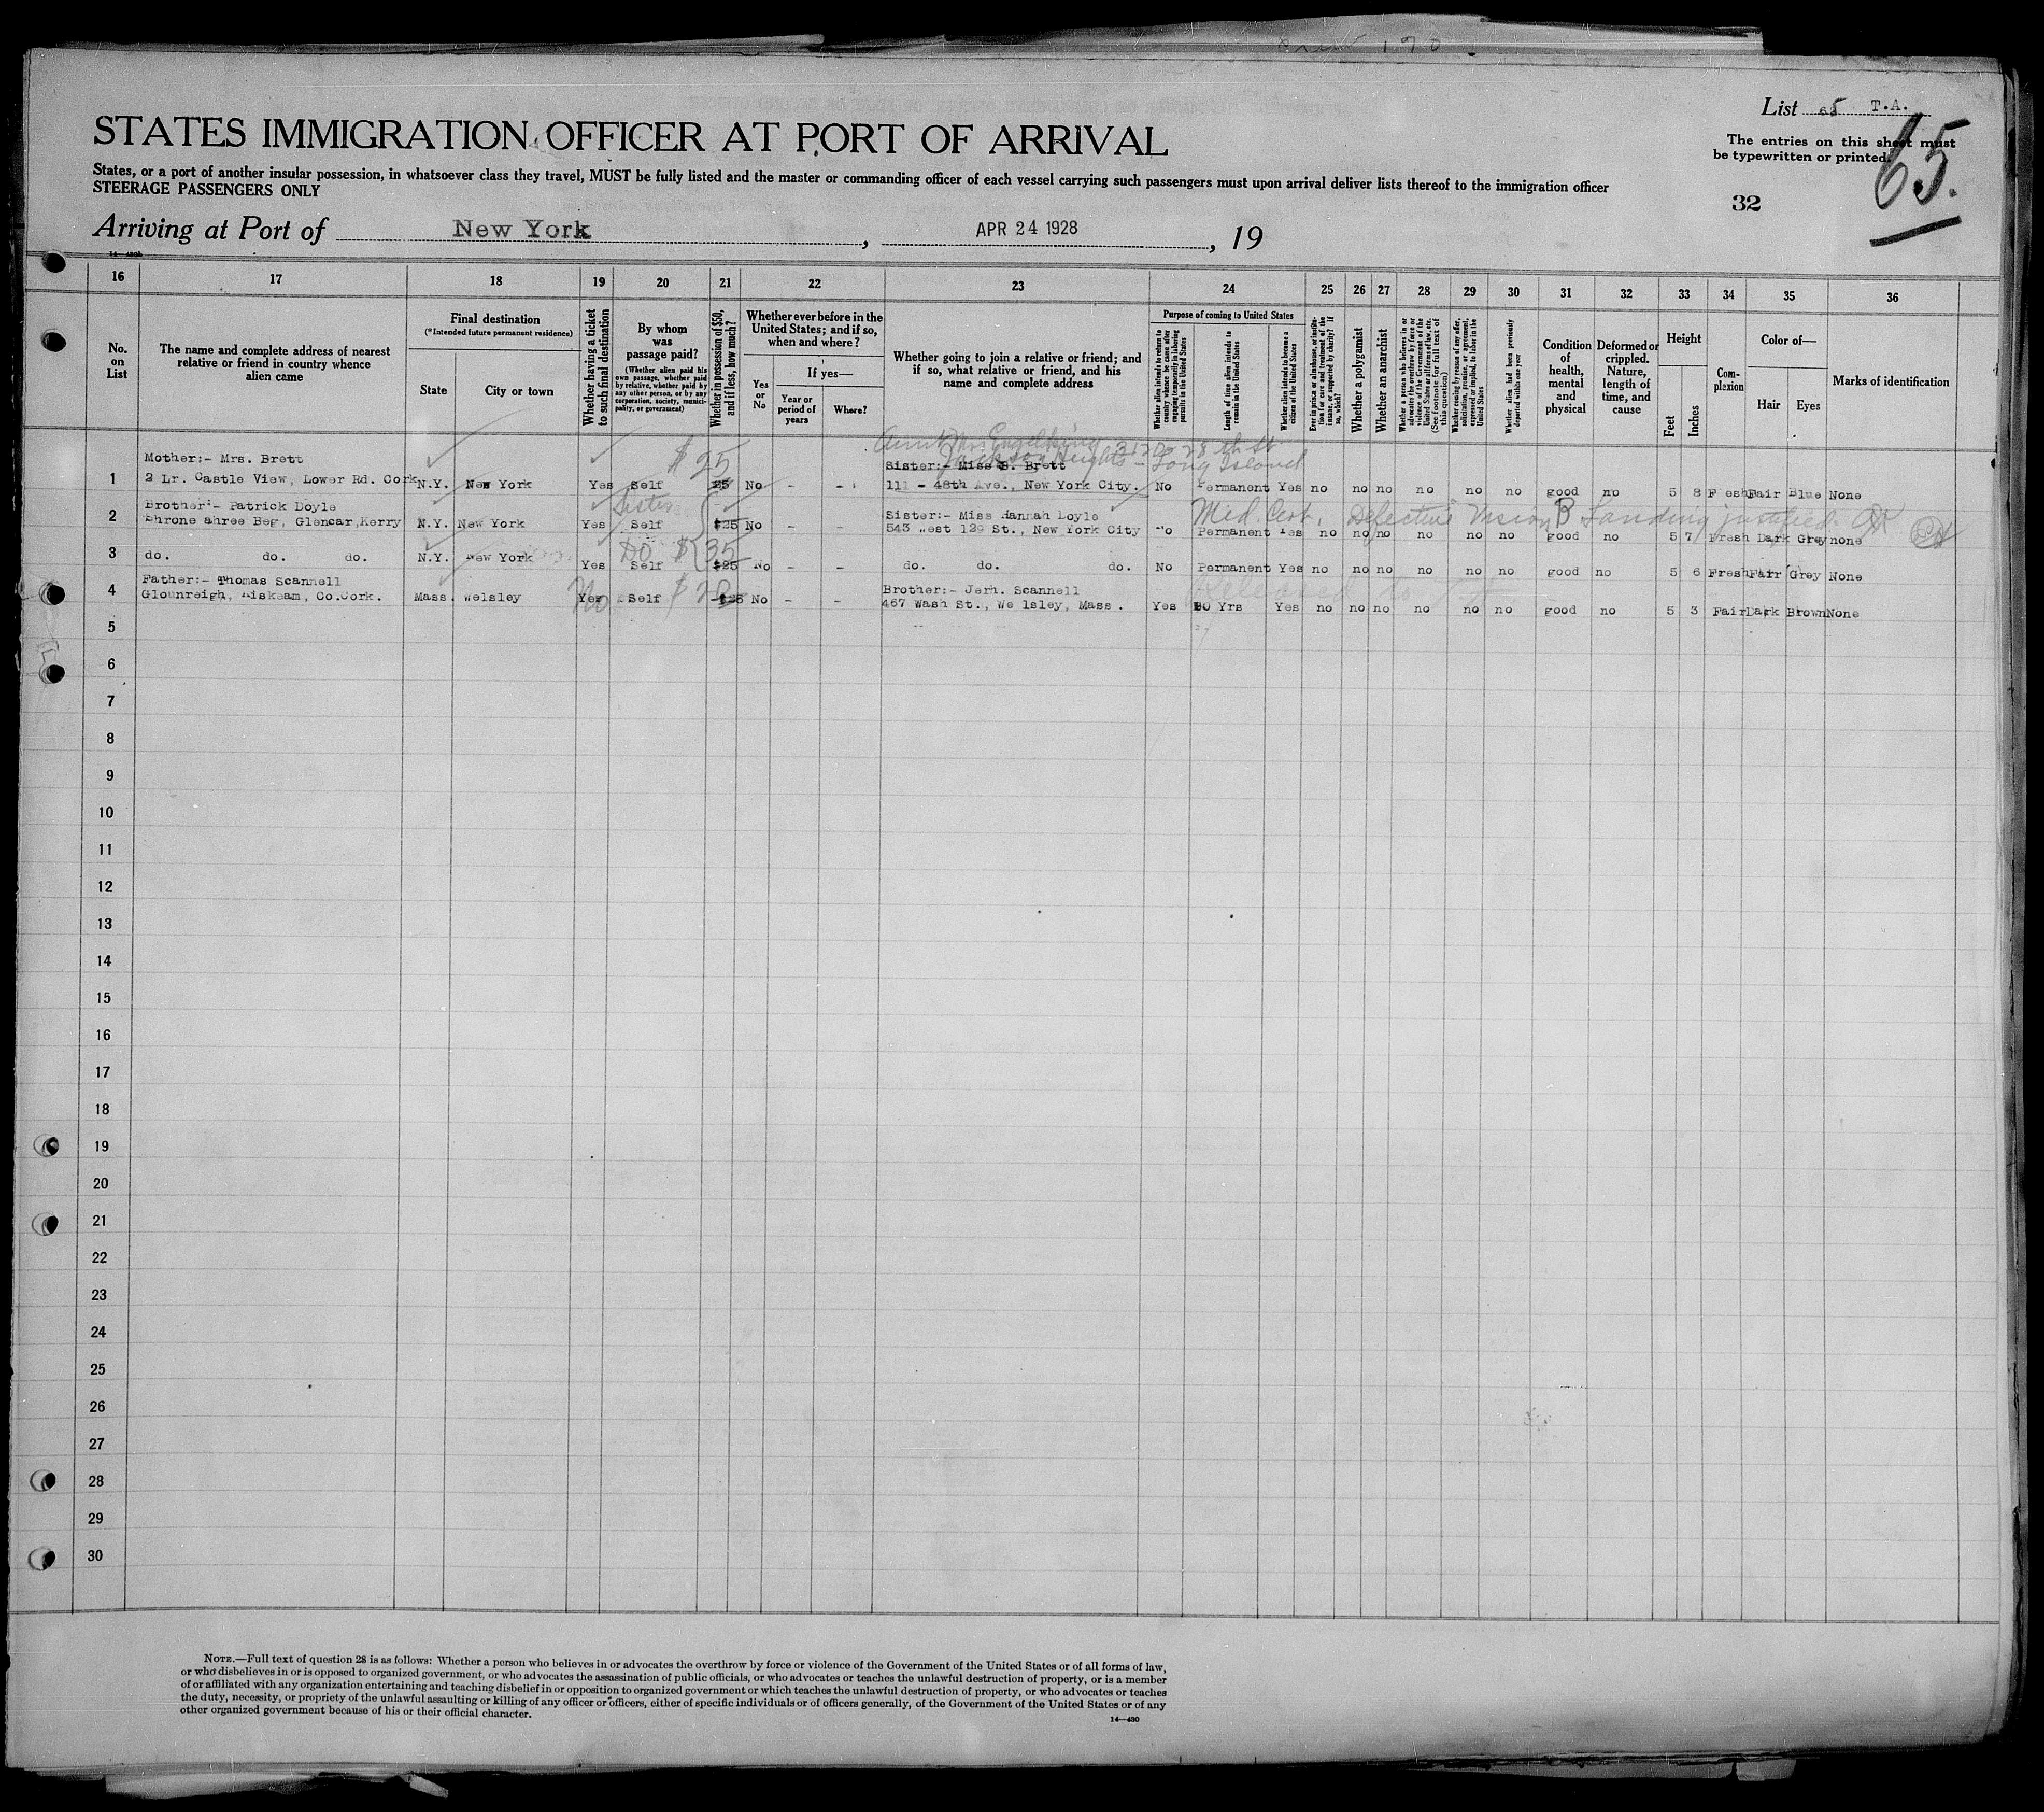 List 65 T.A.
STATES IMMIGRATION OFFICER AT PORT OF ARRIVAL
The entries on this sheet must
be typewritten or printed.
65.
States, or a port of another insular possession, in whatsoever class they travel, MUST be fully listed and the master or commanding officer of each vessel carrying such passengers must upon arrival deliver lists thereof to the immigration officer
STEERAGE PASSENGERS ONLY
32
Arriving at Port of New York, APR 24 1928, 19
16 17 18 19 20 21 22 23 24 25 26 27 28 29 30 31 32 33 34 35 36
No. on List
The name and complete address of nearest relative or friend in country whence alien came
Final destination
(*Intended future permanent residence)
State
City or town
Whether having a ticket to such final destination
By whom was passage paid?
(Whether alien paid his own passage, whether paid by relative, whether paid by any other person, or by any corporation, society, municipality, or government)
Whether in possession of $50, and if less, how much?
Whether ever before in the United States; and if so, when and where?
Yes or No
If yes—
Year or period of years
Where?
Whether going to join a relative or friend; and if so, what relative or friend, and his name and complete address
Purpose of coming to United States
Whether alien intends to return to country whence he came after engaging temporarily in laboring pursuits in the United States
Length of time alien intends to remain in the United States
Whether alien intends to become a citizen of the United States
Ever in prison or almshouse, or institution for care and treatment of the insane, or supported by charity? If so, which?
Whether a polygamist
Whether an anarchist
Whether a person who believes in or advocates the overthrow by force or violence of the Government of the United States or all forms of law, etc. (See footnote for full text of this question)
Whether coming by reason of any offer, solicitation, promise, or agreement, expressed or implied, to labor in the United States
Whether alien had been previously deported within one year
Condition of health, mental and physical
Deformed or crippled. Nature, length of time, and cause
Height
Feet
Inches
Complexion
Color of—
Hair
Eyes
Marks of identification
Aunt Mrs. Engelking 28 th St
Jackson Heights - Long Island
Mother:- Mrs. Brett $25 Sister:- Miss B. Brett
1 2 Lr. Castle View, Lower Rd. Cork N.Y. New York Yes Self 25 No - - 111 - 48th Ave., New York City. No Permanent Yes no no no no no no good no 5 8 Fresh Fair Blue None
Brother:- Patrick Doyle Sister Sister:- Miss Hannah Doyle Med. Cert. Defective Vision B Landing justified.
2 Shrone ahree Beg, Glencar, Kerry N.Y. New York Yes Self $25 No - - 543 West 129 St., New York City No Permanent Yes no no no no no no good no 5 7 Fresh Dark Grey none
Do $35
3 do. do. do. N.Y. New York Yes Self $25 No - - do. do. do. No Permanent Yes no no no no no no good no 5 6 Fresh Fair Grey None
Father:- Thomas Scannell Brother:- Jerh. Scannell
4 Glounreigh, Kiskeam, Co.Cork. Mass. Welsley No Yes Self $25 No - - 467 Wash St., Welsley, Mass. Yes 20 Yrs Yes no no no no no no good no 5 3 Fair Dark Brown None
5
6
7
8
9
10
11
12
13
14
15
16
17
18
19
20
21
22
23
24
25
26
27
28
29
30
NOTE.—Full text of question 28 is as follows: Whether a person who believes in or advocates the overthrow by force or violence of the Government of the United States or of all forms of law,
or who disbelieves in or is opposed to organized government, or who advocates the assassination of public officials, or who advocates or teaches the unlawful destruction of property, or is a member
of or affiliated with any organization entertaining and teaching disbelief in or opposition to organized government or which teaches the unlawful destruction of property, or who advocates or teaches
the duty, necessity, or propriety of the unlawful assaulting or killing of any officer or officers, either of specific individuals or of officers generally, of the Government of the United States or of any
other organized government because of his or their official character.
14—430